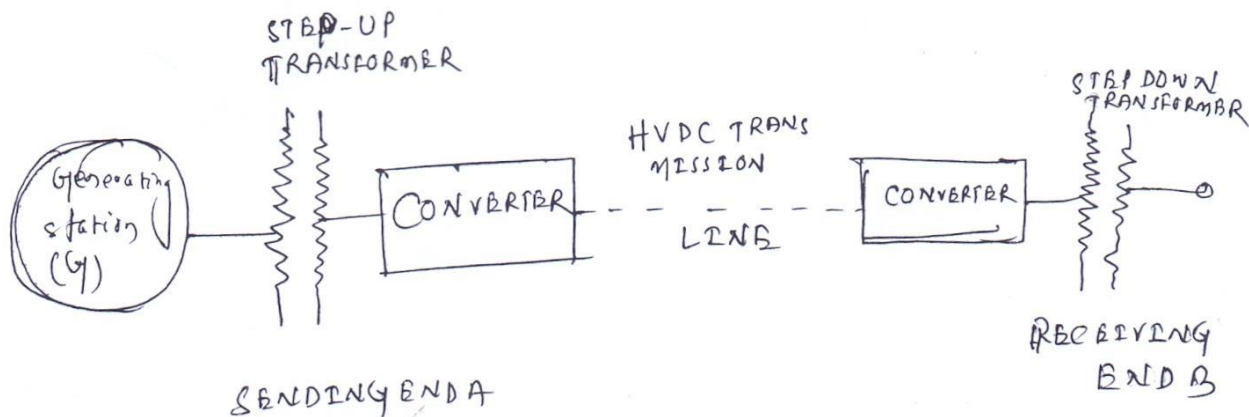 STEP-UP
TRANSFORMER
Generating
station
(G)
CONVERTER
HVDC TRANS
MISSION
LINE
CONVERTER
STEP DOWN
TRANSFORMER
SENDING END A
RECEIVING
END B